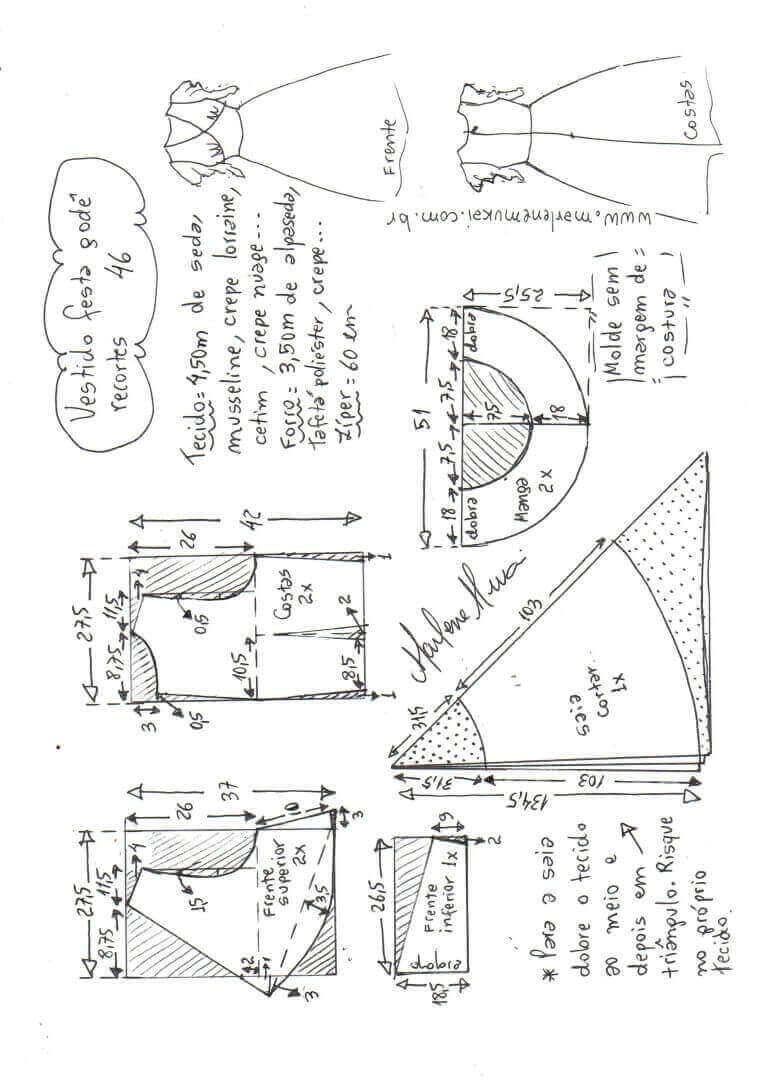 Vestido festa godê
recortes 46
Tecido = 4,50m de seda,
musseline, crepe lorraine,
cetim, crepe nuage...
Forro = 3,50m de alpaseda,
tafetá poliester, crepe...
Zíper = 60 cm
Frente
Costas
www.marlenemukai.com.br
27,5
8,75
11,5
4
26
37
1,5
10
3
Frente
superior
2x
3,5
2
1
3
27,5
8,75
11,5
4
26
42
3
0,5
0,5
Costas
2x
10,5
8,5
2
1
1
51
18
7,5
7,5
18
dobra
dobra
7,5
18
25,5
Manga
2x
Molde sem
margem de
costura
26,5
18,5
dobra
Frente
inferior 1x
9
2
Marlene Mukai
31,5
103
31,5
103
134,5
saia
cortar
1x
* Para a saia
dobre o tecido
ao meio e
depois em
triângulo. Risque
no próprio
tecido.